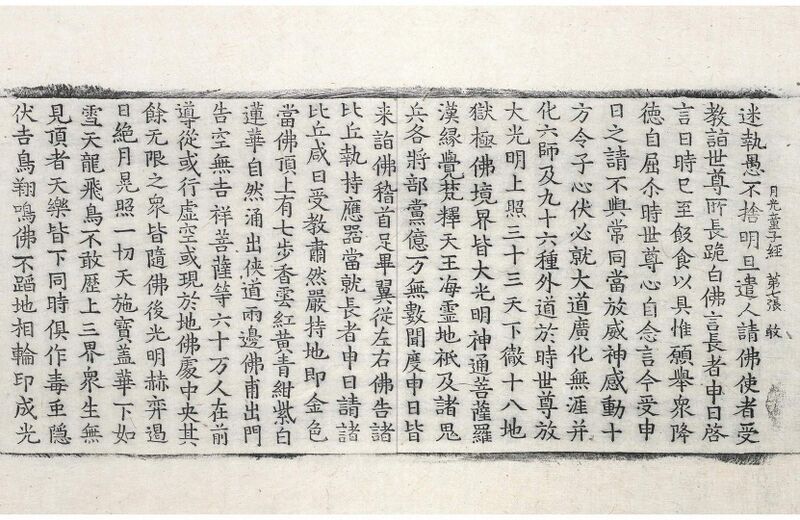 月光童子經 第七張 攺
迷執愚不捨明旦遣人請佛使者受
教詣世尊所長跪白佛言長者申日啓
言日時已至飯食以具惟願舉衆降
德自屈尒時世尊心自念言今受申
日之請不與常同當放威神感動十
方令子心伏必就大道廣化無涯并
化六師及九十六種外道於時世尊放
大光明上照三十三天下徹十八地
獄極佛境界皆大光明神通菩薩羅
漢緣覺梵釋天王海靈地祇及諸鬼
兵各將部黨億万無數聞度申日皆
来詣佛稽首足畢翼從左右佛告諸
比丘執持應器當就長者申日請諸
比丘咸曰受教肅然嚴持地即金色
當佛頂上有七步香雲紅黃青紺紫白
蓮華自然涌出俠道兩邊佛甫出門
告空無吉祥菩薩等六十万人在前
導從或行虛空或現於地佛處中央其
餘无限之衆皆隨佛後光明赫弈遏
日絕月晃照一切天施寶蓋華下如
雪天龍飛鳥不敢歷上三界衆生無
見頂者天樂皆下同時俱作毒虫隱
伏吉鳥翔鳴佛不蹈地相輪印成光